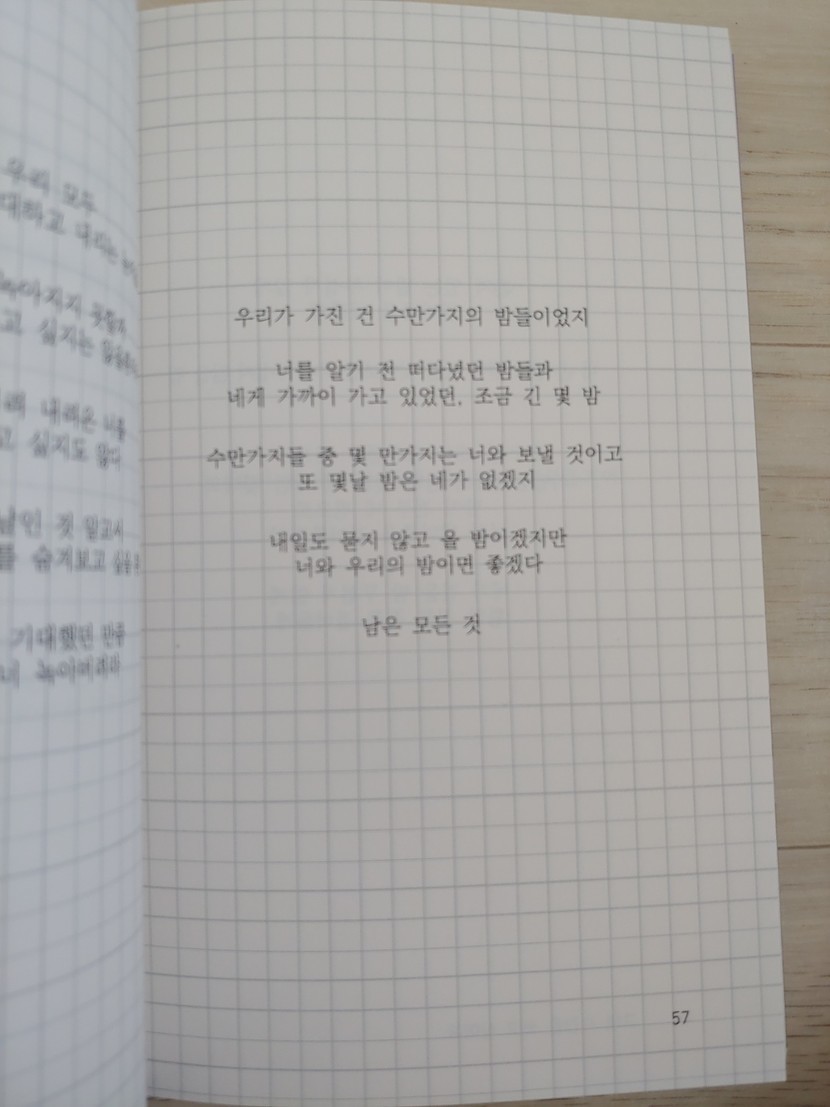 우리 모두
대하고 내리는
고 싶지는
내려온 너를
고 싶지도 않다
기대했던 만큼
녹아버려라
우리가 가진 건 수만가지의 밤들이었지
너를 알기 전 떠다녔던 밤들과
네게 가까이 가고 있었던, 조금 긴 몇 밤
수만가지들 중 몇 만가지는 너와 보낼 것이고
또 몇날 밤은 네가 없겠지
내일도 묻지 않고 올 밤이겠지만
너와 우리의 밤이면 좋겠다
남은 모든 것
57